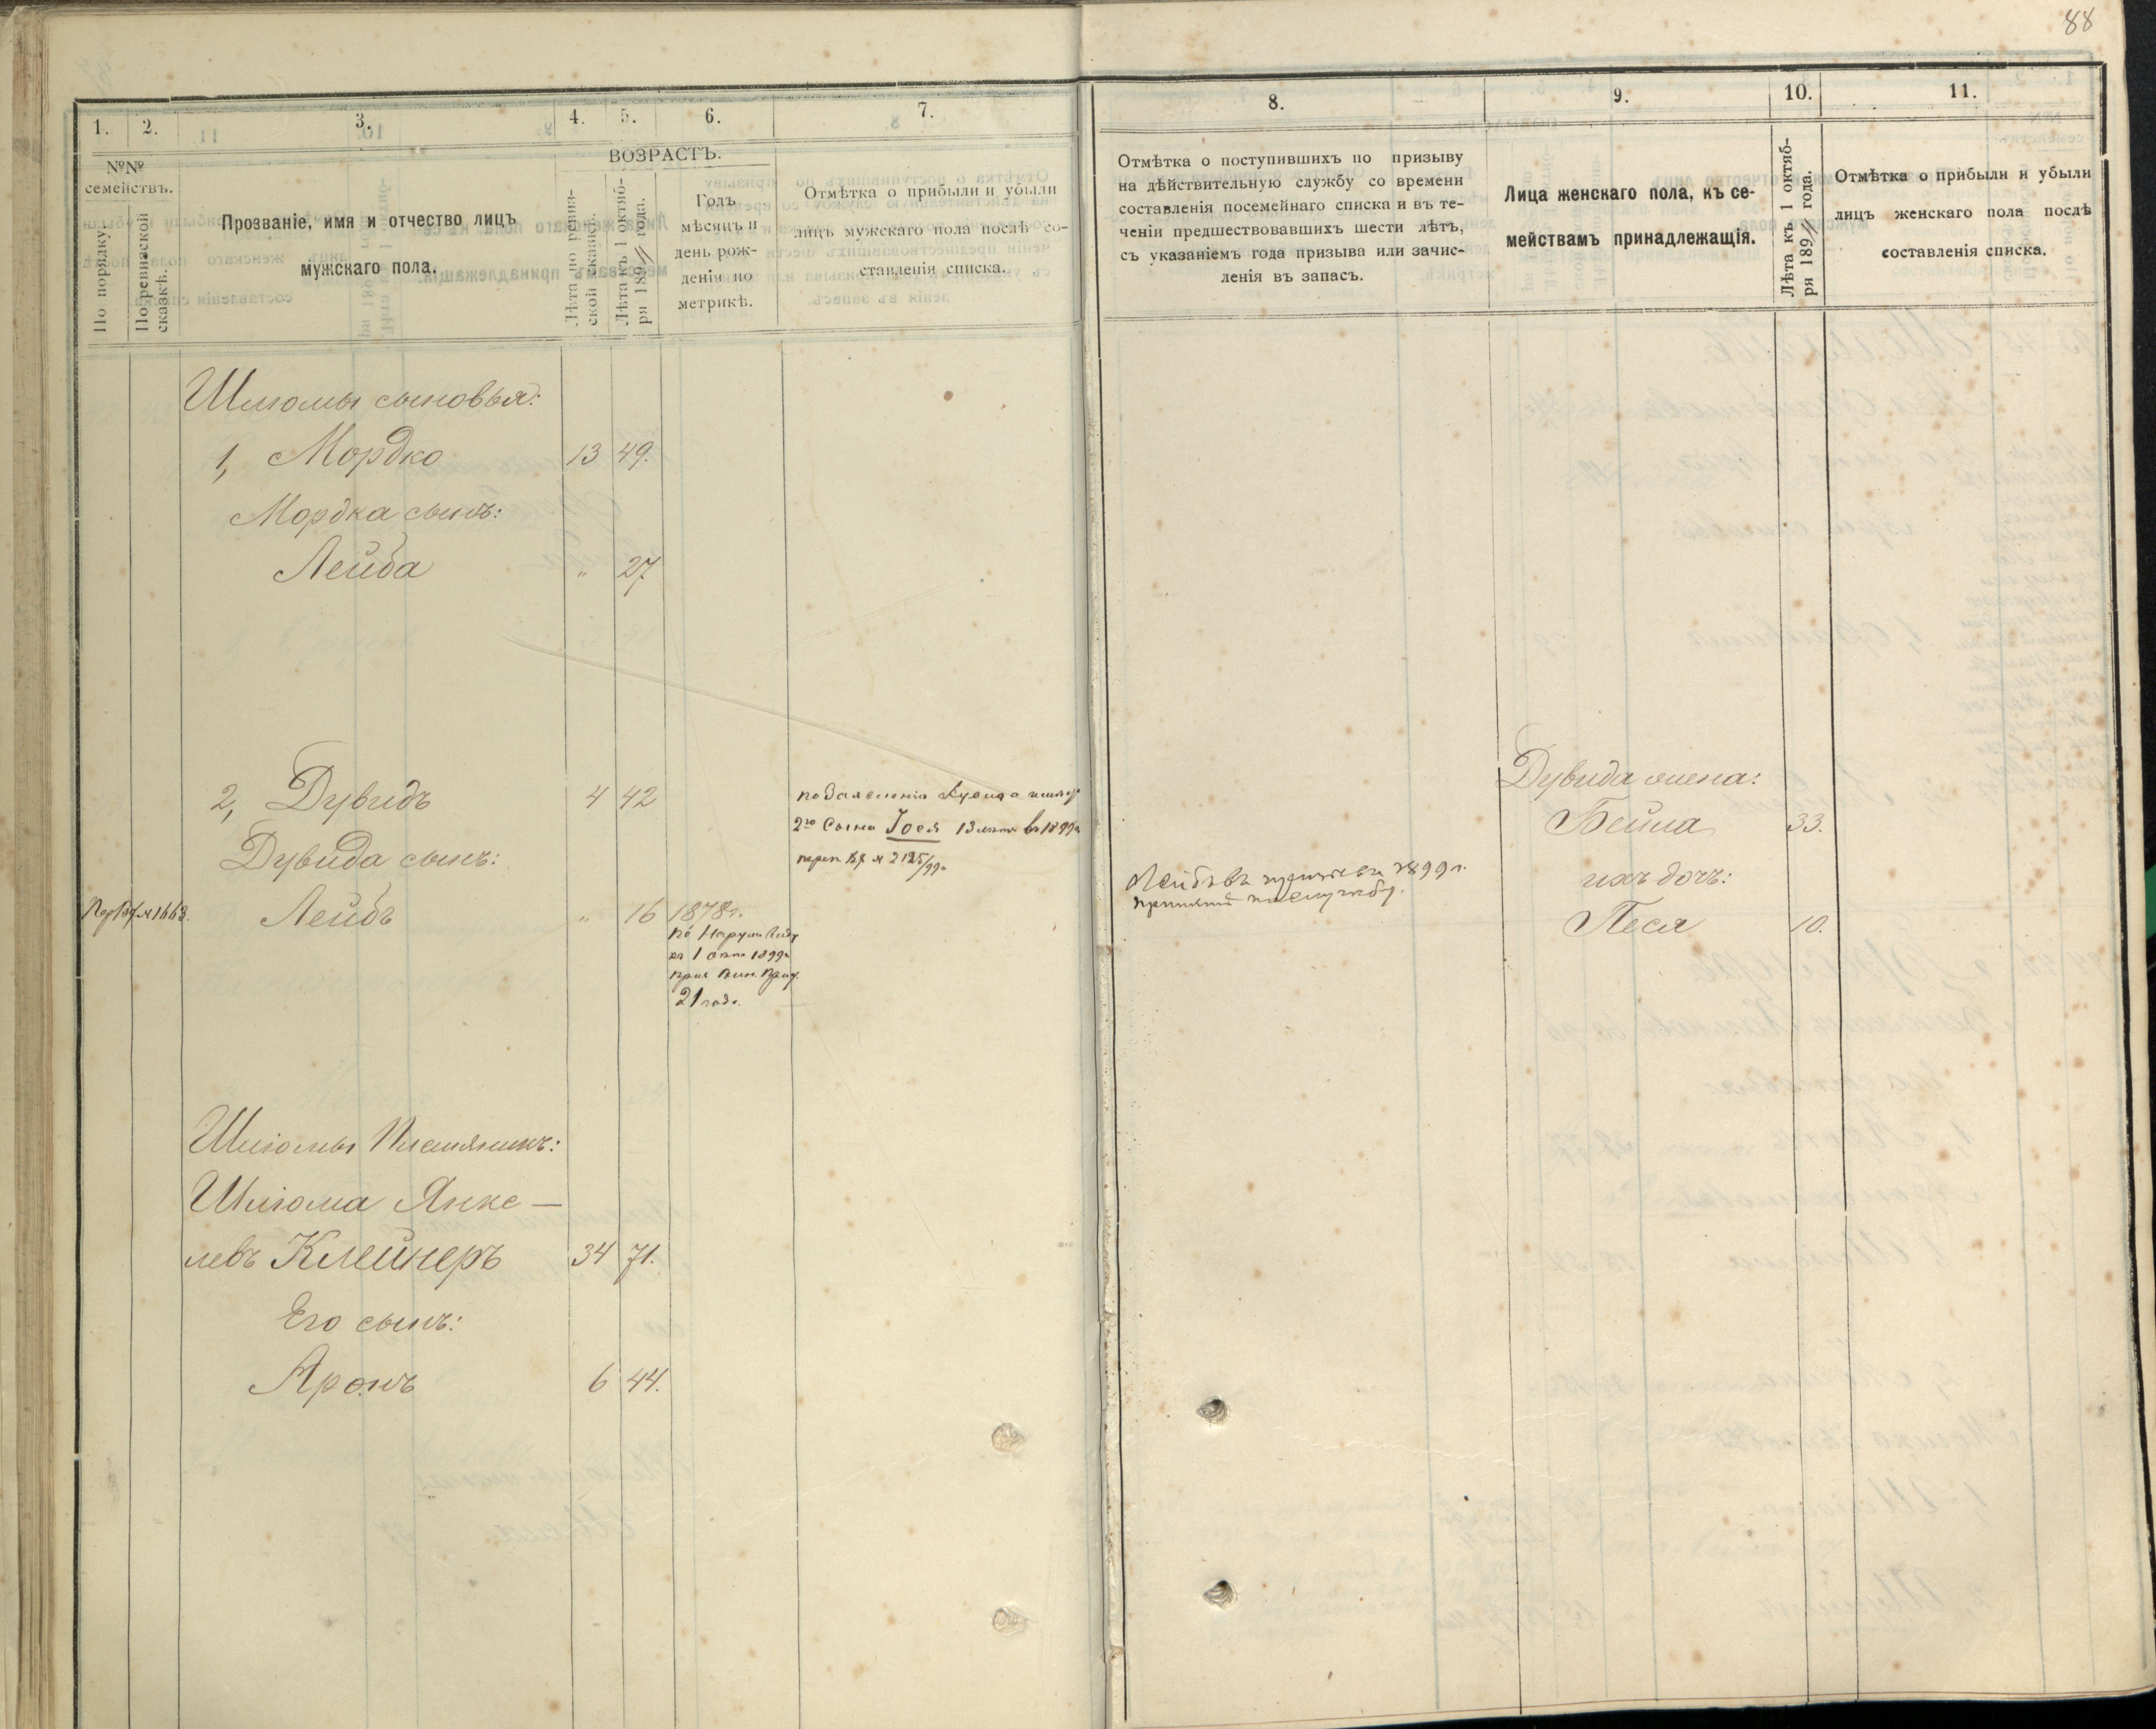 88
1.
2.
3.
4.
5.
6.
7.
8.
9.
10.
11.
№№ семействъ.
По порядку.
По ревизской сказкѣ.
Прозваніе, имя и отчество лицъ
мужскаго пола.
ВОЗРАСТЪ.
Лѣта по ревиз-
ской сказкѣ.
Лѣта къ 1 октяб-
ря 189 года.
Годъ
мѣсяцъ и
день рож-
денія по
метрикѣ.
Отмѣтка о прибыли и убыли
лицъ мужскаго пола послѣ со-
ставленія списка.
Отмѣтка о поступившихъ по призыву
на дѣйствительную службу со времени
составленія посемейнаго списка и въ те-
ченіи предшествовавшихъ шести лѣтъ,
съ указаніемъ года призыва или зачис-
ленія въ запасъ.
Лица женскаго пола, къ се-
мействамъ принадлежащія.
Лѣта къ 1 октяб-
ря 189 года.
Отмѣтка о прибыли и убыли
лицъ женскаго пола послѣ
составленія списка.
Шлиомы сыновья:
1, Мордко 13 49.
Мордка сынъ:
Лейба " 27
2, Дувидъ 4 42
Дувида сынъ:
№ 1663. Лейбъ " 16 1878 г.
по
къ 1 1899
21 года.
по Заявленію
2го Сына Іося 13 въ 1899
№ 2125/99
Лейбъ въ 1899 г.
принятъ на службу.
Дувида жена:
Бейла 33.
ихъ дочь:
Песя 10.
Шлиомы Племянникъ:
Шлиома Янке—
левъ Клейнеръ 34 71.
Его сынъ:
Аронъ 6 44.